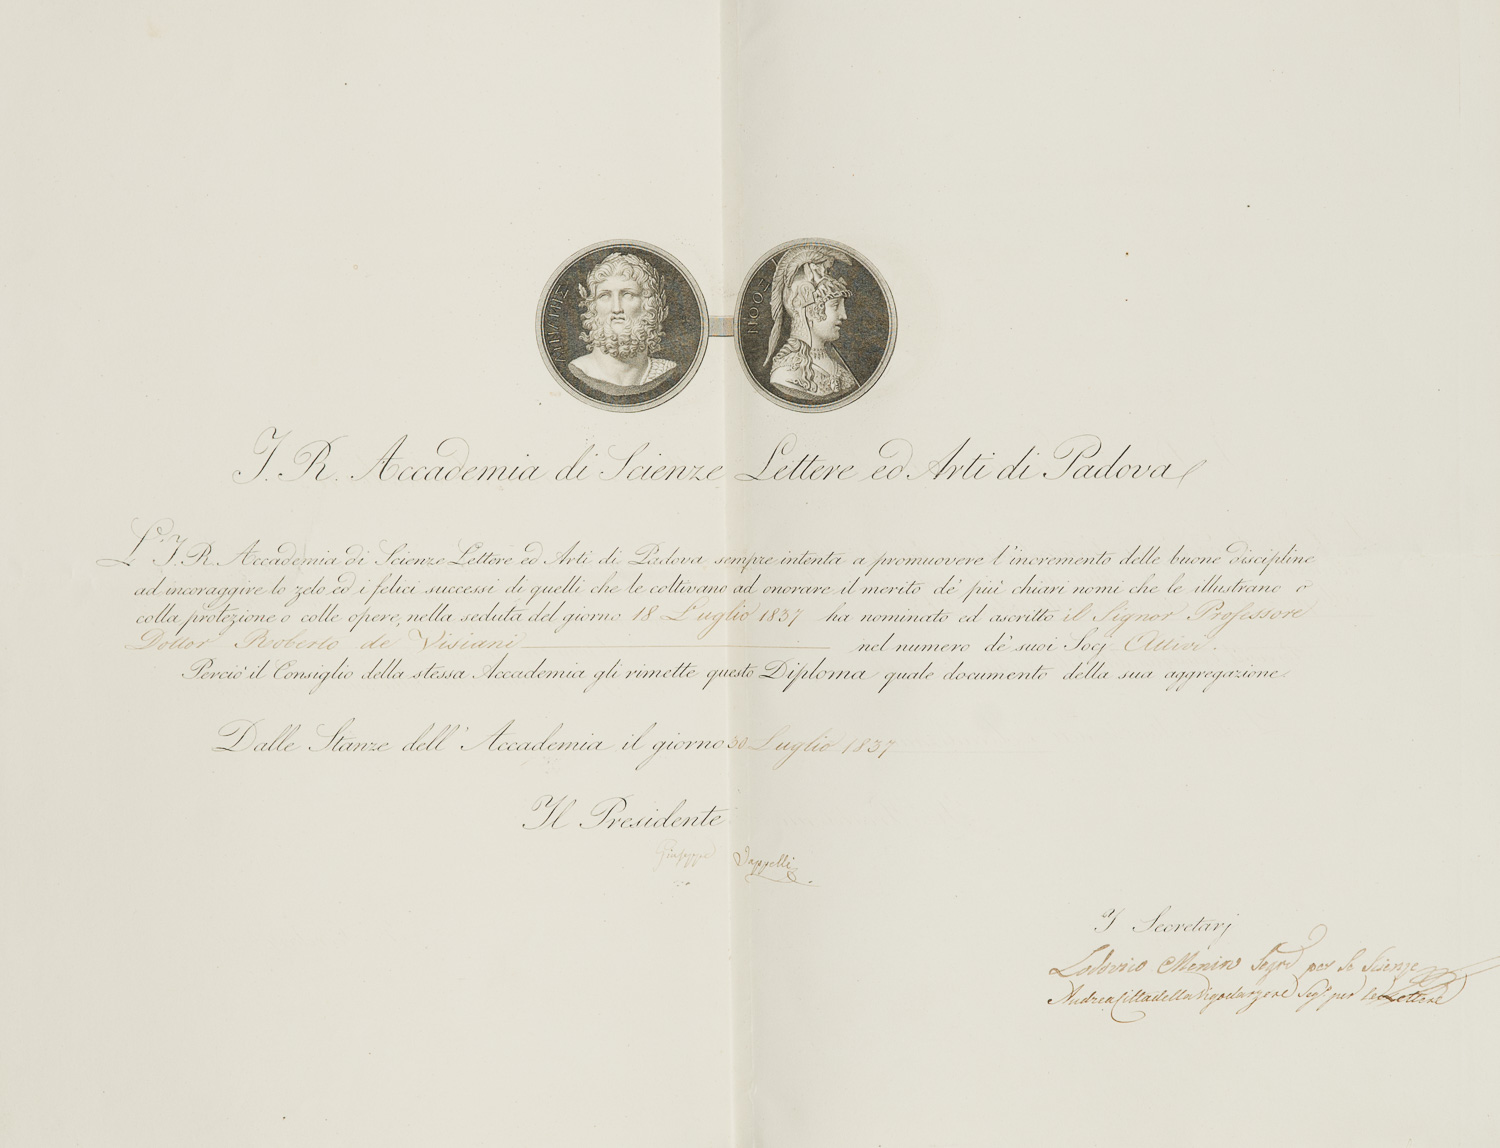 I. R. Accademia di Scienze Lettere ed Arti di Padova
L'I. R. Accademia di Scienze Lettere ed Arti di Padova sempre intenta a promuovere l'incremento delle buone discipline
ad incoraggire lo zelo ed i felici successi di quelli che le coltivano ad onorare il merito de' piu' chiari nomi che le illustrano o
colla protezione o colle opere, nella seduta del giorno 18 Luglio 1837 ha nominato ed ascritto il Signor Professore
Dottor Roberto de Visiani nel numero de' suoi Socj Attivi.
Percio' il Consiglio della stessa Accademia gli rimette questo Diploma quale documento della sua aggregazione.
Dalle Stanze dell'Accademia il giorno 30 Luglio 1837
Il Presidente
Giuseppe Jappelli
I Secretarj
Lodovico Menin Segr.o per le Scienze
Andrea Cittadella Vigodarzere Seg.o per le Lettere